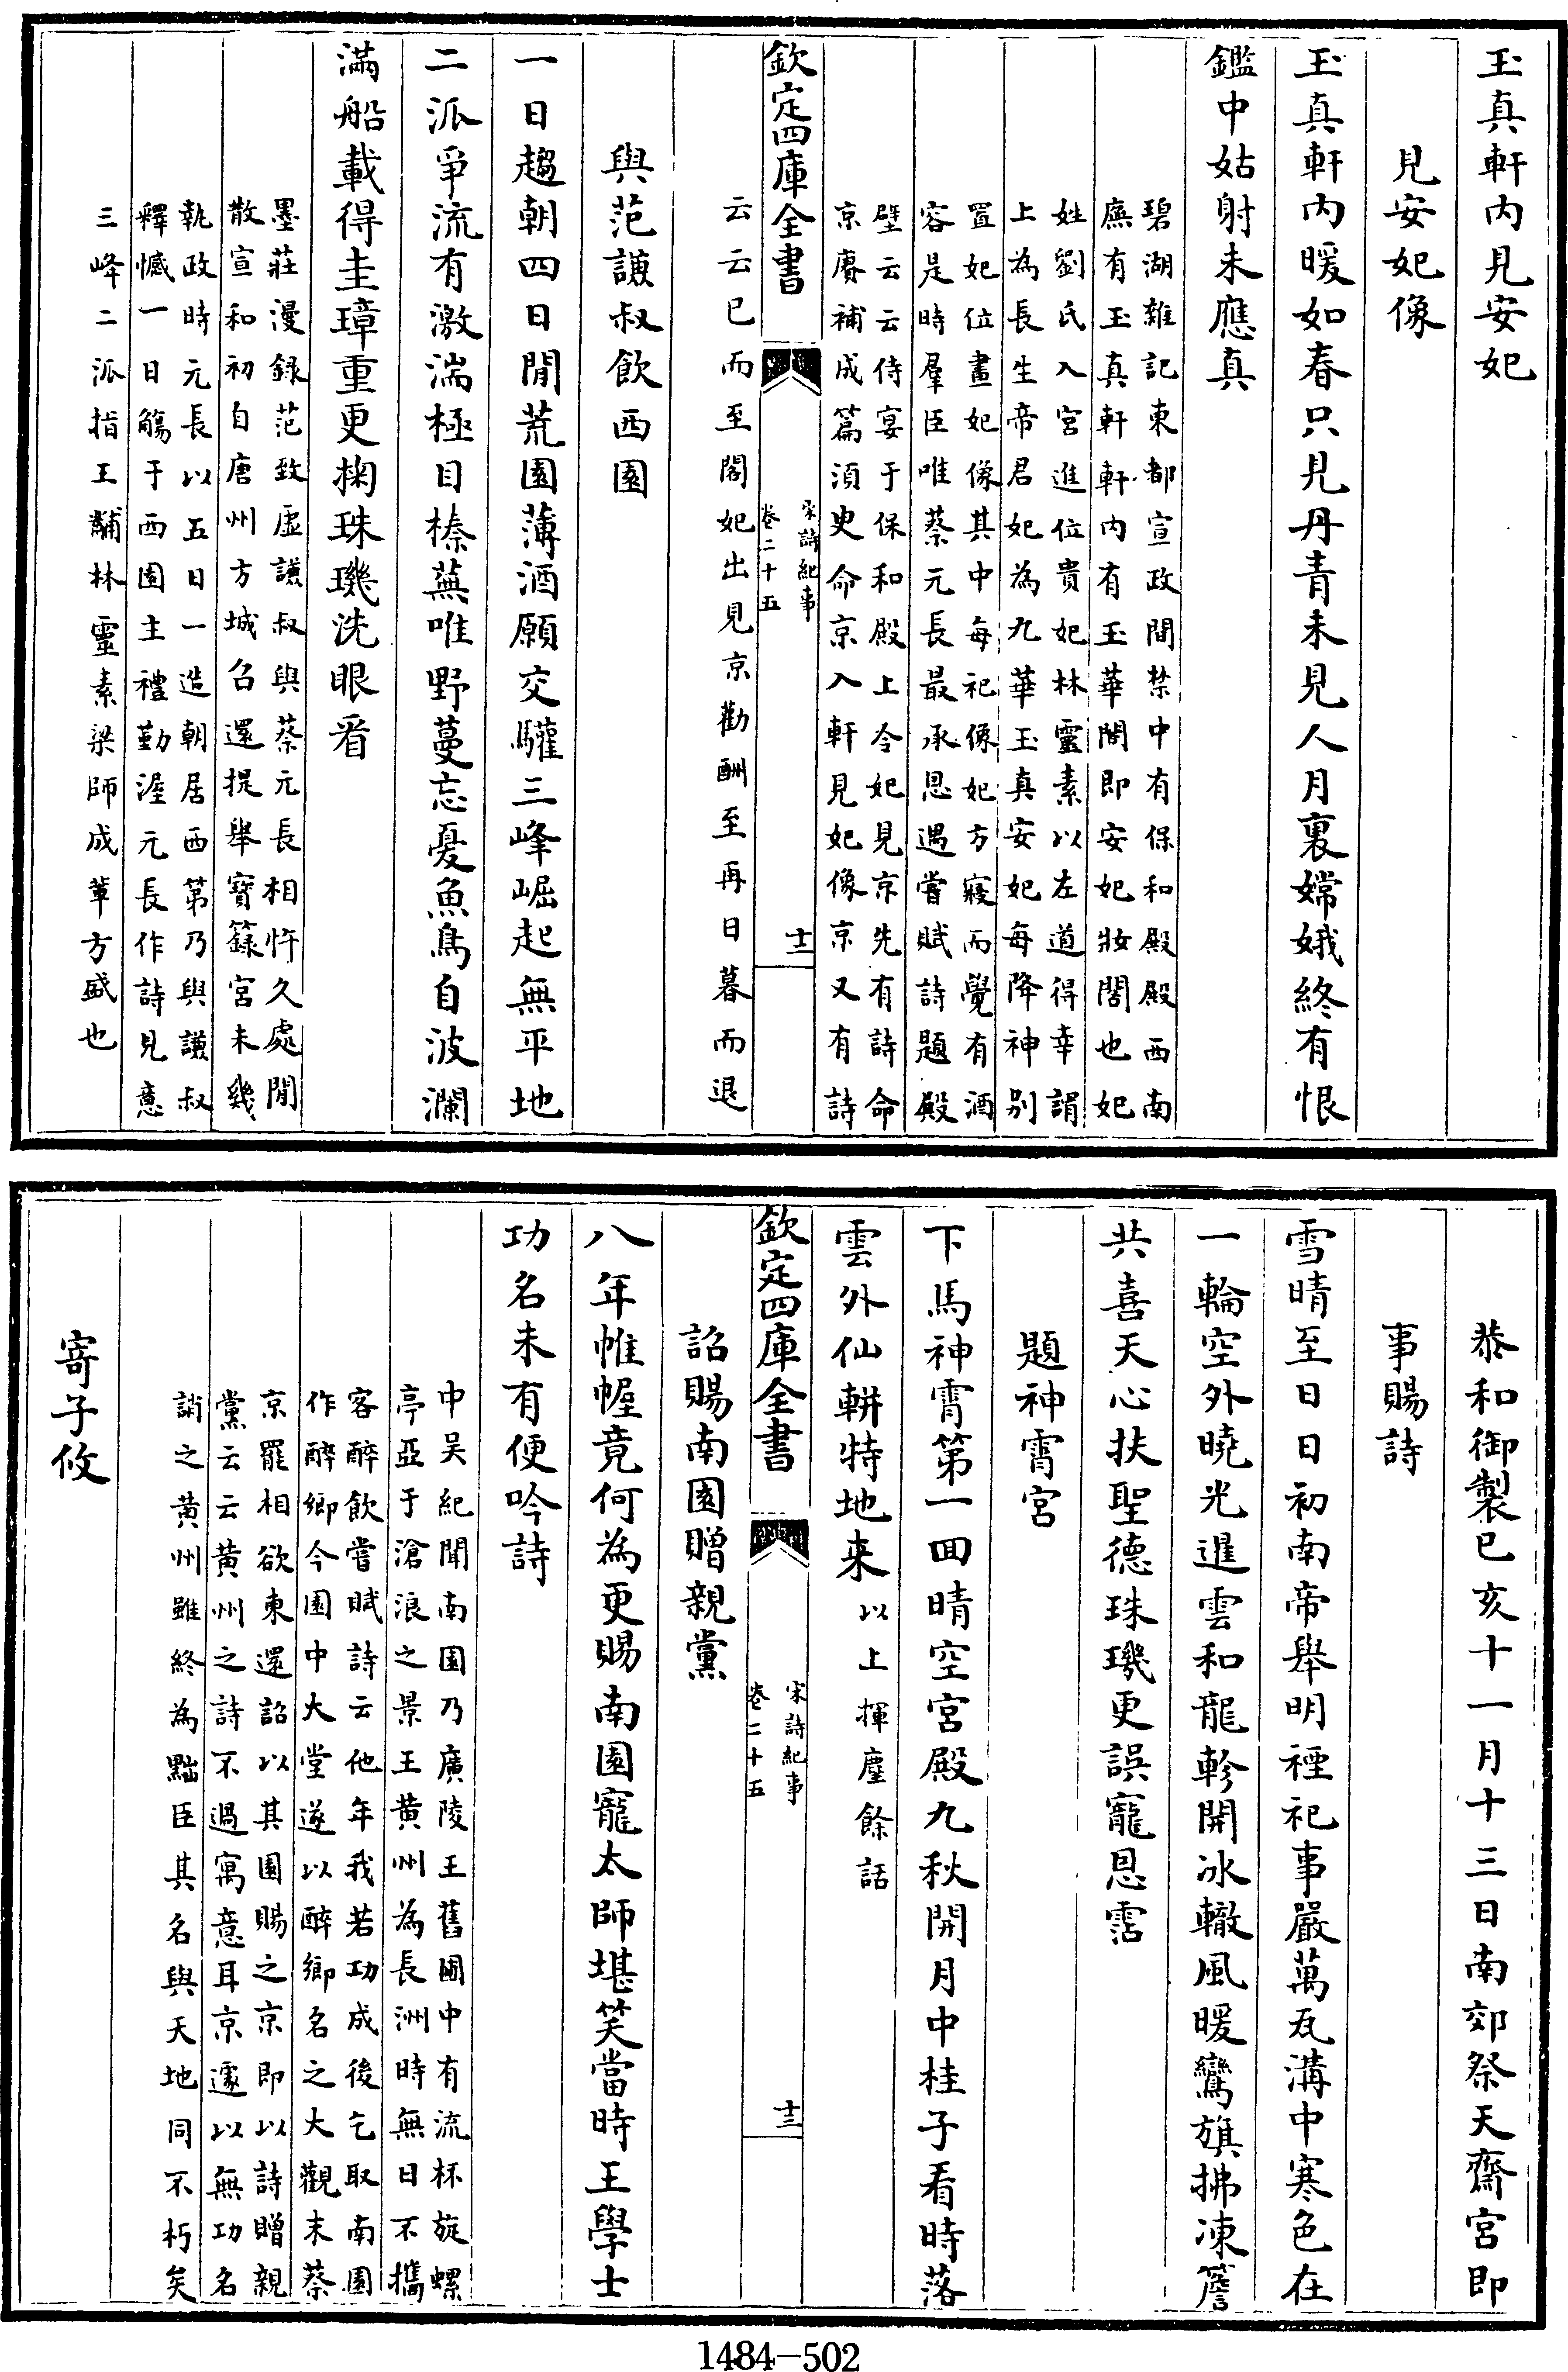 玉真軒内見安妃
見安妃像
玉真軒内暖如春只見丹青未見人月裏嫦娥終有恨
鑑中姑射未應真
碧湖雜記東都宣政間禁中有保和殿殿西南
廡有玉真軒軒内有玉華閣即安妃妝閣也妃
姓劉氏入宮進位貴妃林靈素以左道得幸謂
上為長生帝君妃為九華玉真安妃每降神别
置妃位畫妃像其中每祀像妃方寢而覺有酒
容是時羣臣唯蔡元長最承恩遇嘗賦詩題殿
壁云云侍宴于保和殿上令妃見京先有詩命
京賡補成篇須臾命京入軒見妃像京又有詩
欽定四庫全書
宋詩紀事
卷二十五
十二
云云已而至閣妃出見京勸酬至再日暮而退
與范謙叔飲西園
一日趨朝四日閒荒園薄酒願交驩三峰崛起無平地
二派爭流有激湍極目榛蕪唯野蔓忘憂魚鳥自波瀾
滿船載得圭璋重更掬珠璣洗眼看
墨莊漫録范致虚謙叔與蔡元長相忤久處閒
散宣和初自唐州方城召還提舉寶籙宮未幾
執政時元長以五日一造朝居西第乃與謙叔
釋憾一日觴于西園主禮勤渥元長作詩見意
三峰二派指王黼林靈素梁師成軰方盛也
恭和御製已亥十一月十三日南郊祭天齋宮即
事賜詩
雪晴至日日初南帝舉明禋祀事嚴萬瓦溝中寒色在
一輪空外曉光暹雲和龍軫開冰轍風暖鸞旗拂凍簷
共喜天心扶聖德珠璣更誤寵恩霑
題神霄宮
下馬神霄第一回晴空宮殿九秋開月中桂子看時落
雲外仙輧特地来以上揮麈餘話
欽定四庫全書
宋詩紀事
卷二十五
十三
詔賜南園贈親黨
八年帷幄竟何為更賜南園寵太師堪笑當時王學士
功名未有便吟詩
中吴紀聞南園乃廣陵王舊圃中有流杯旋螺
亭亞于滄浪之景王黄州為長洲時無日不攜
客醉飲嘗賦詩云他年我若功成後乞取南園
作醉鄉今園中大堂遂以醉鄉名之大觀末蔡
京罷相欲東還詔以其園賜之京即以詩贈親
黨云云黄州之詩不過寓意耳京遽以無功名
誚之黄州雖終為黜臣其名與天地同不朽矣
寄子攸
1484-502